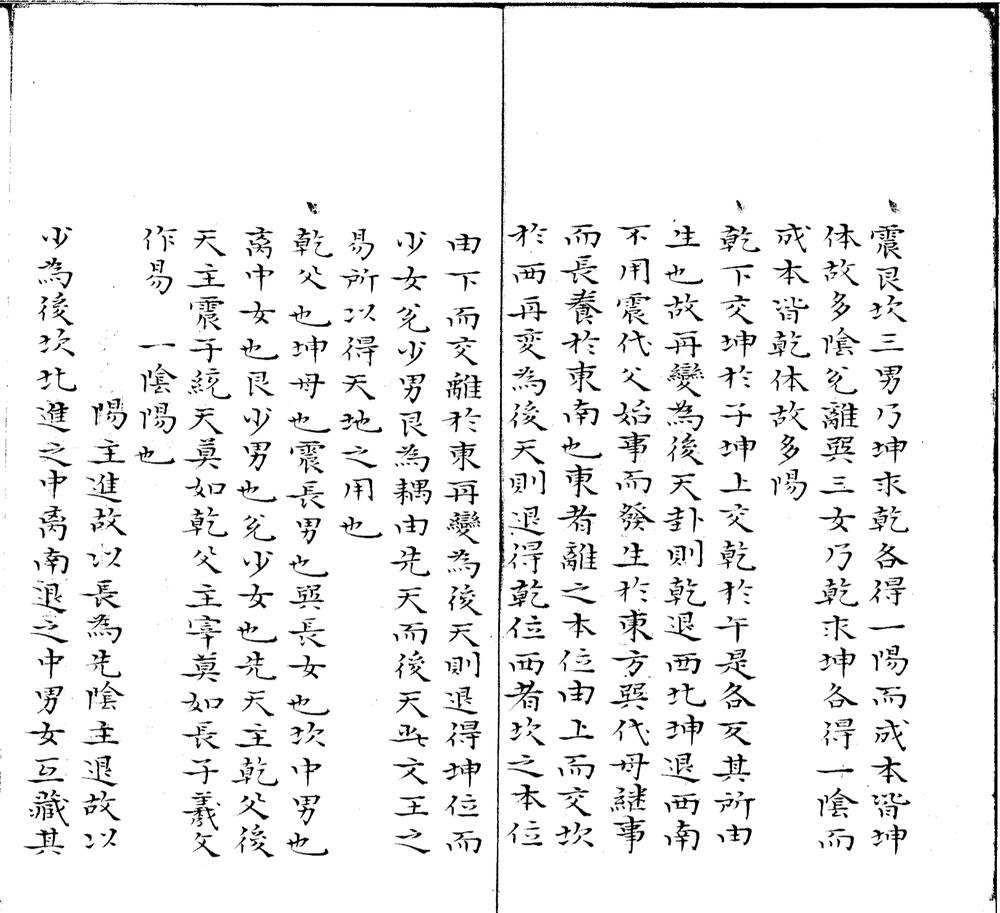 震艮坎三男乃坤求乾各得一陽而成本皆坤
体故多陰兊離巽三女乃乾求坤各得一陰而
成本皆乾体故多陽
乾下交坤於子坤上交乾於午是各反其所由
生也故再變為後天卦則乾退西北坤退西南
不用震代父始事而發生於東方巽代母継事
而長養於東南也東者離之本位由上而交坎
於西再変為後天則退得乾位西者坎之本位
由下而交離於東再變為後天則退得坤位而
少女兊少男艮為耦由先天而後天此文王之
易所以得天地之用也
乾父也坤母也震長男也巽長女也坎中男也
离中女也艮少男也兊少女也先天主乾父後
天主震子統天莫如乾父主宰莫如長子羲文
作易　一陰陽也
陽主進故以長為先陰主退故以
少為後坎北進之中离南退之中男女互藏其